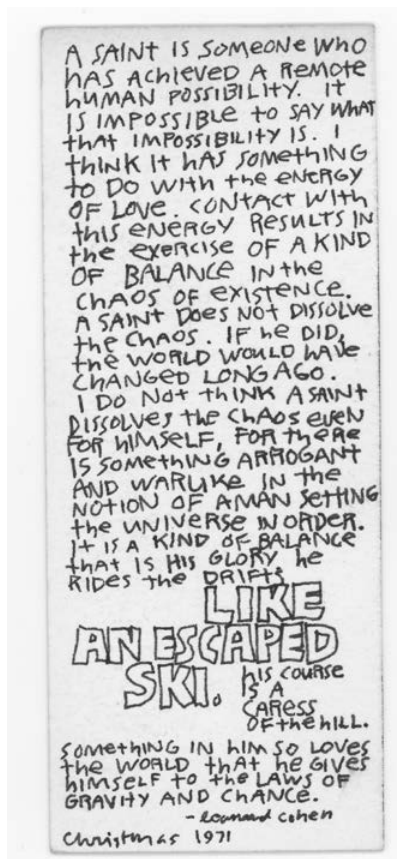 A SAINT IS SOMEONE WHO
HAS ACHIEVED A REMOTE
HUMAN POSSIBILITY. IT
IS IMPOSSIBLE TO SAY WHAT
THAT IMPOSSIBILITY IS. I
THINK IT HAS SOMETHING
TO DO WITH THE ENERGY
OF LOVE. CONTACT WITH
THIS ENERGY RESULTS IN
THE EXERCISE OF A KIND
OF BALANCE IN THE
CHAOS OF EXISTENCE.
A SAINT DOES NOT DISSOLVE
THE CHAOS. IF HE DID,
THE WORLD WOULD HAVE
CHANGED LONG AGO.
I DO NOT THINK A SAINT
DISSOLVES THE CHAOS EVEN
FOR HIMSELF, FOR THERE
IS SOMETHING ARROGANT
AND WARLIKE IN THE
NOTION OF A MAN SETTING
THE UNIVERSE IN ORDER.
IT IS A KIND OF BALANCE
THAT IS HIS GLORY. HE
RIDES THE DRIFTS
LIKE
AN ESCAPED
SKI. HIS COURSE
IS A
CARESS
OF THE HILL.
SOMETHING IN HIM SO LOVES
THE WORLD THAT HE GIVES
HIMSELF TO THE LAWS OF
GRAVITY AND CHANCE.
- leonard cohen
Christmas 1971